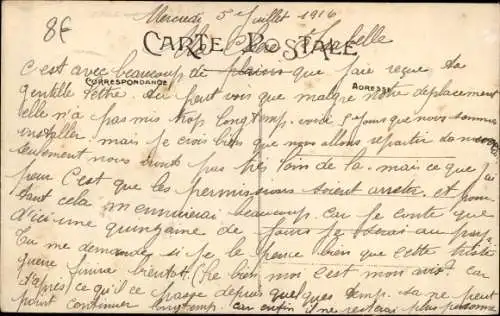 8F
Mercredi 5 Juillet 1916
CARTE POSTALE
Ma chère Isabelle
CORRESPONDANCE
ADRESSE
C'est avec beaucoup de plaisir que j'ai reçue ta
gentille lettre. Tu peut vois que malgré notre déplacement
elle n'a pas mis trop longtemp. voici jours que nous sommes
installer mais je crois bien que nous allons repartir de nouveau
seulement nous irons pas très loin de la. mais ce que j'ai
peur C'est que les permissions soient arreter. et pour
tant cela m'ennuierai beaucoup. Car je conte que
d'ici une quinzaine de jours je serai au pays
Tu me demandes si je le pense bien que cette triste
guerre finira bientôt. Eh bien moi c'est mon avis. car
d'après ce qu'il ce passe depuis quelques temp. sa ne peut
point continuer longtemp. car enfin il ne restera plus personne